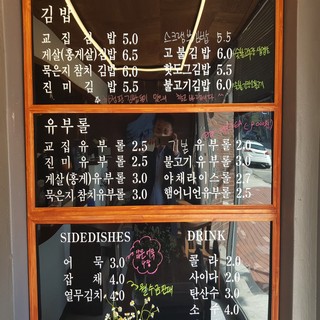 김밥
교집김밥 5.0
게살(홍게살)김밥 6.5
묵은지참치김밥 6.0
진미김밥 5.5
5.5
고불김밥 6.0
핫도그김밥 5.5
불고기김밥 6.0
유부롤
교집유부롤 2.5
진미유부롤 2.5
게살(홍게)유부롤 3.0
묵은지참치유부롤 3.0
기본유부롤 2.0
불고기유부롤 3.0
야채라이스롤 2.7
햄어니언유부롤 2.5
SIDEDISHES
어묵 3.0
잡채 4.0
열무김치 4.0
DRINK
콜라 2.0
사이다 2.0
탄산수 3.0
소주 4.0